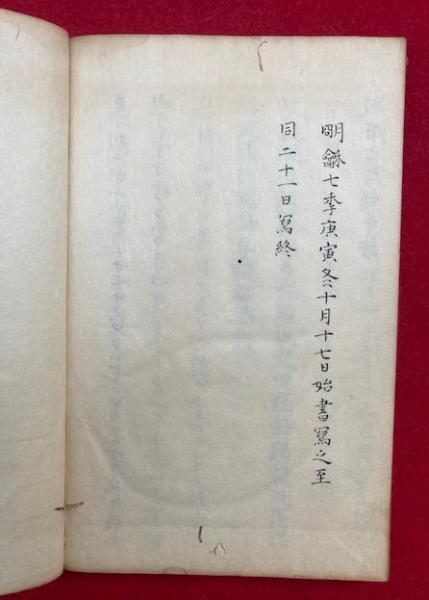 明龢七季庚寅冬十月十七日始書寫之至
同二十一日寫終